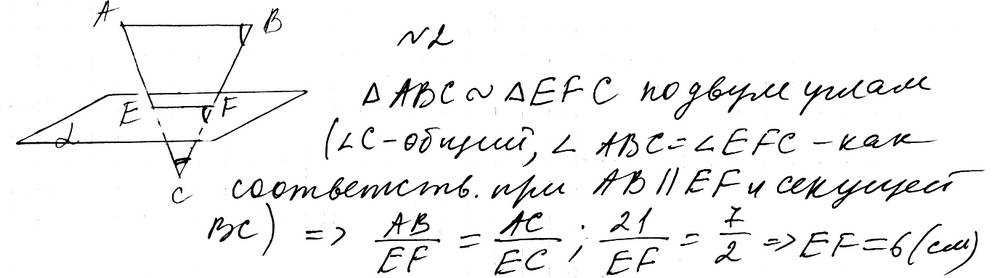 A B
N2
E F
△ABC ∼ △EFC по двум углам
α
(∠C-общий, ∠ABC=∠EFC-как
C
соответств. при AB || EF и секущей
BC) => AB/EF = AC/EC ; 21/EF = 7/2 => EF=6(см)